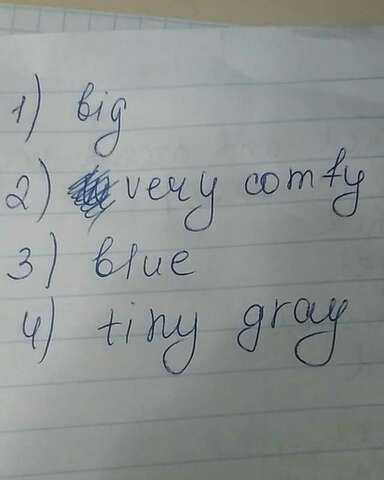 1) big
2) very comfy
3) blue
4) tiny gray